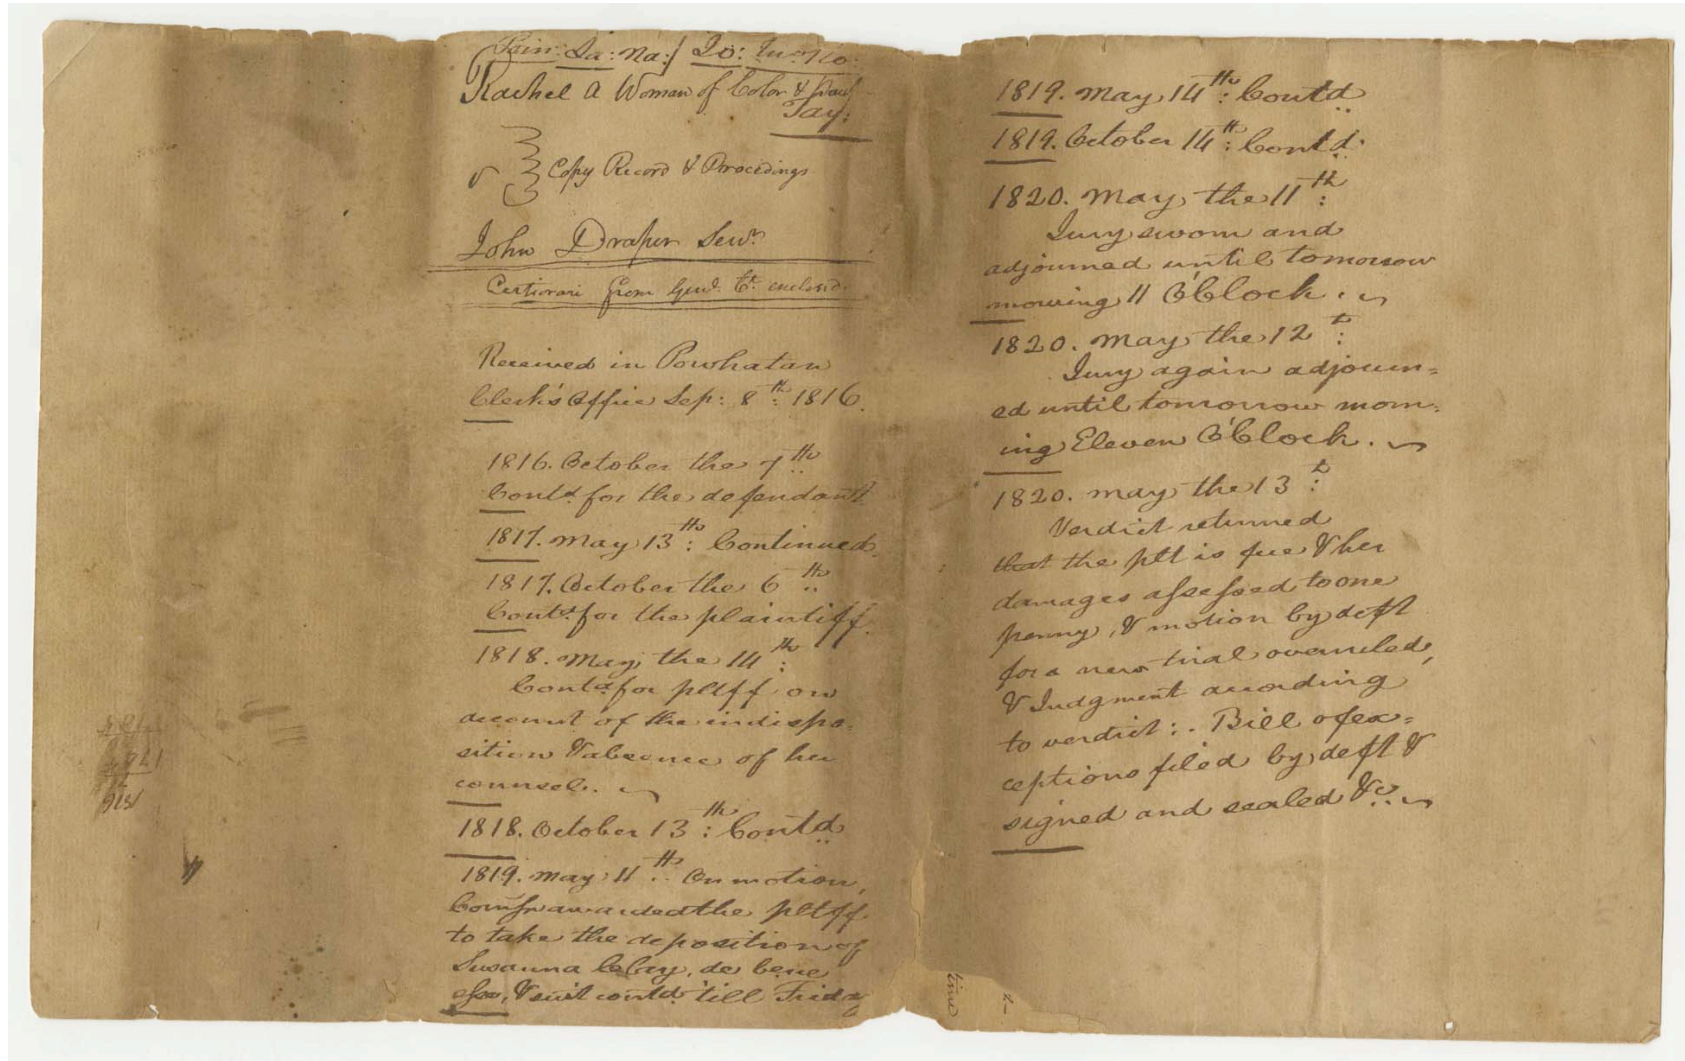 Rachel A Woman of Color & Pau
Pay:
v Copy Record & Procedings
John Draper Senr.
Certiorari from Genl. Ct. enclosed.
Received in Powhatan
Clerk's Office Sep: 8th: 1816.
1816. October the 7th
Contd for the defendant
1817. May 13th: Continued.
1817. October the 6th
Contd. for the plaintiff.
1818. May, the 14th:
Contd for pltff on
account of the indispo-
sition & absence of her
counsel.
1818. October 13th: Contd
1819. May 11th: On motion,
Comsn awarded the pltff.
to take the deposition of
Susanna Clay, de bene
esse, & suit contd. 'till Frida
1819. May 14th: Contd
1819. October 14th: Contd.
1820. May, the 11th:
Jury sworn and
adjourned until tomorrow
morning 11 O'Clock.
1820. May the 12t:
Jury again adjourn=
ed until tomorrow morn=
ing Eleven O'Clock.
1820. May the 13t:
Verdict returned
that the plt is free & her
damages assessed to one
penny, & motion by deft
for a new trial overruled,
& Judgment according
to verdict:. Bill of ex=
ceptions filed by deft &
signed and sealed &c.